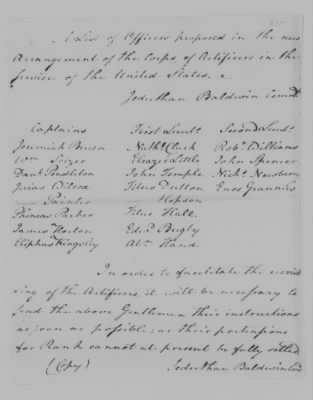 A List of Officers proposed in the new
Arrangement of the Corps of Artificers in the
Service of the United States.
Jeduthan Baldwin Comdt
Captains First Lieuts. Second Lieuts.
Jeremiah Bruen Nathl. Clark Robt. Williams
Wm. Sizer Eleazer Little John Spencer
Danl. Pendilton John Temple Nichs. Newburn
Josias Wilcox Titus Dutton Enos Grannis
—— Painter —— Hopson
Phineas Parker Titus Hall
James Horton Edwd. Bugly
Eliphas Kingsley Abm. Hand
In order to facilitate the recruit
ing of the Artificers, it will be necessary to
send the above Gentlemen their instructions
as soon as possible, as their pretensions
for Rank cannot at present be fully settled
(Copy) Jeduthan Baldwin